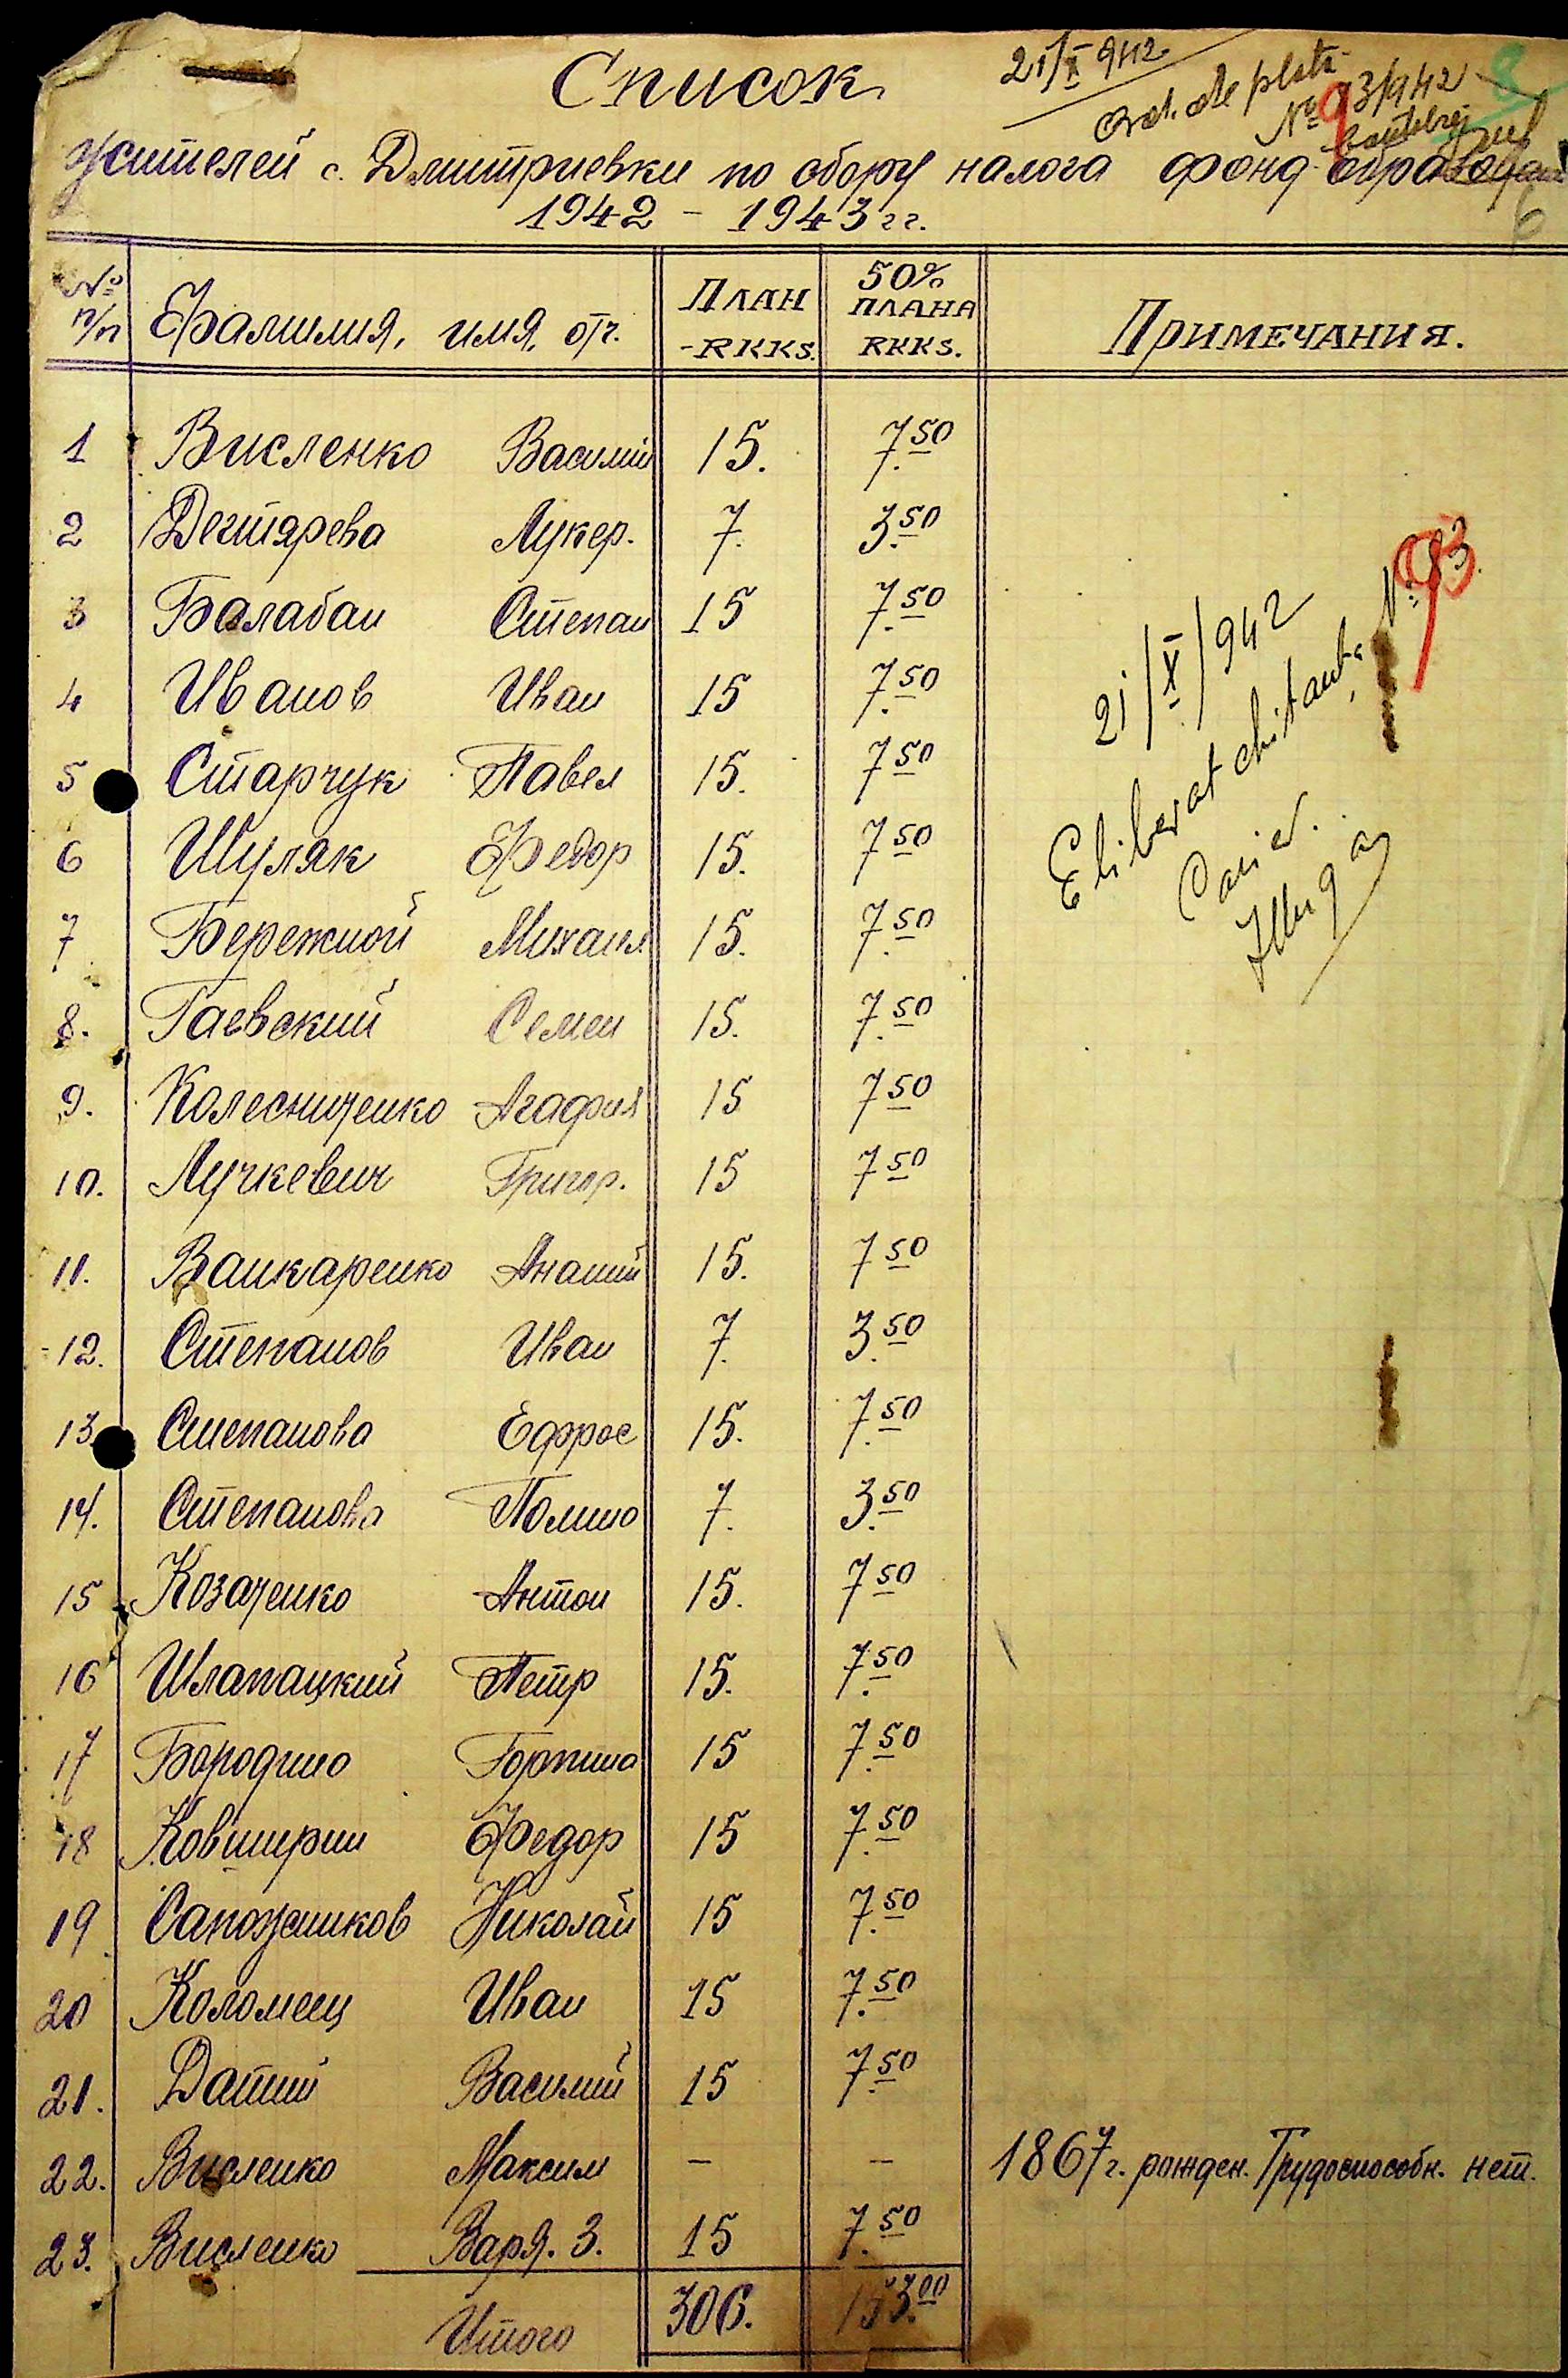 Список
21/X 942
Ord. de plată
№ 93/942
жителей с. Дмитриевки по сбору налога фонд
1942 - 1943 гг.
№ п/п Фамилия, имя, отч. План -RKKS. 50% плана RKKS. Примечания.
1 Висленко Василий 15. 7.50
2 Дегтярева Лукер. 7. 3.50
3 Балабан Степан 15 7.50
4 Иванов Иван 15 7.50
5 Старчук Павел 15. 7.50
6 Шуляк Федор 15. 7.50
7 Бережной Михаил 15. 7.50
8. Гаевский Семен 15. 7.50
9. Колесниченко Агафия 15 7.50
10. Лучкевич Григор. 15 7.50
11. Ванкаренко Ананий 15. 7.50
12. Степанов Иван 7. 3.50
13. Степанова Ефрос 15. 7.50
14. Степанова Полина 7. 3.50
15 Козаченко Антон 15. 7.50
16 Шлапацкий Петр 15. 7.50
17 Бородино Горпина 15 7.50
18 Ковширин Федор 15 7.50
19 Сапожников Николай 15 7.50
20 Коломеец Иван 15 7.50
21. Даший Василий 15 7.50
22. Висленко Максим - - 1867 г. рожден. Трудоспособн. нет.
23. Висленко Варя. З. 15 7.50
Итого 306. 153.00
21/X/942
Eliberat chitanta № 93.
Casier.